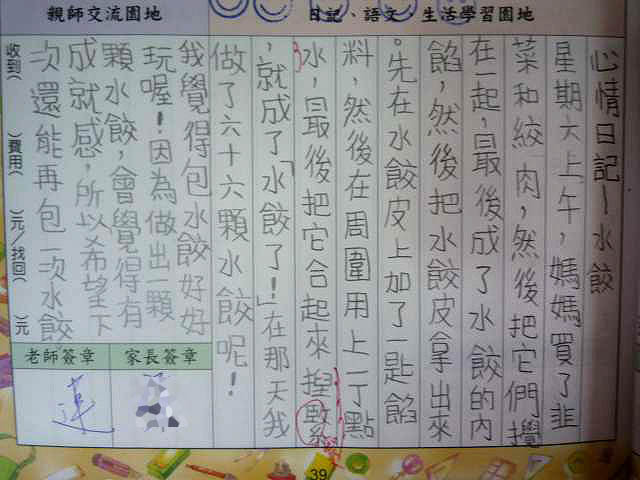 親師交流園地
日記、語文、生活學習園地
心情日記—水餃
星期六上午，媽媽買了韭
菜和絞肉，然後把它們攪
在一起，最後成了水餃的內
餡，然後把水餃皮拿出來
。先在水餃皮上加了一匙餡
料，然後在周圍用上一丁點
水，最後把它合起來捏緊
，就成了「水餃了！」在那天我
做了六十六顆水餃呢！
我覺得包水餃好好
玩喔！因為做出一顆
顆水餃，會覺得有
成就感，所以希望下
次還能再包一次水餃
收到（ ）費用（ ）元/找回（ ）元
老師簽章
家長簽章
蓮
39